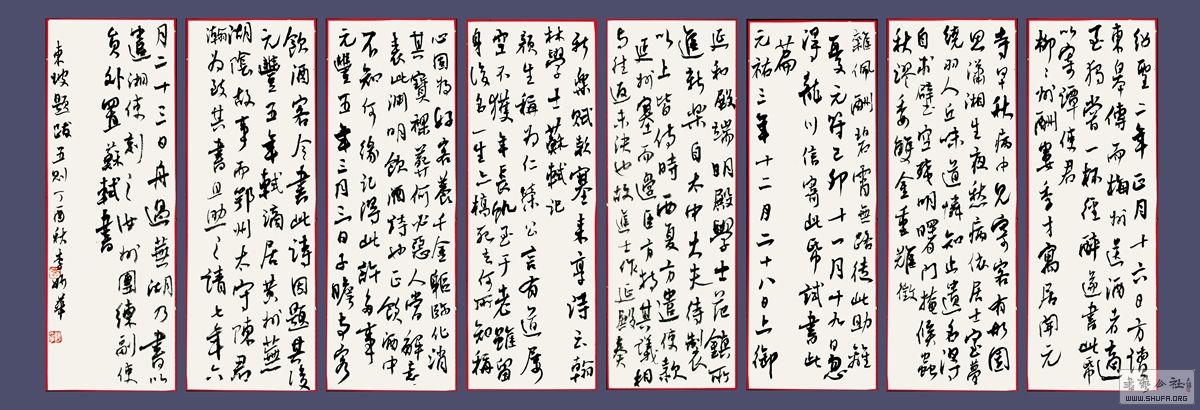 紹聖二年正月十六日方讀
東皋傳而梅州送酒者適
至獨嘗一杯徑醉遂書此紙
以寄譚使君
柳柳州酬婁秀才寓居開元
寺早秋病中見寄客有故園
思瀟湘生夜愁病依居士室夢
繞羽人丘味道憐知止遺名得
自求壁空殘明曙門掩候蟲
秋謬委雙金重難徵
雜佩酬碧霄無路徒此助離
憂元符己卯十一月十九日忽
得龍川信寄此紙試書此
篇
元祐三年十二月二十八日上御
延和殿端明殿學士范鎮所
進新樂自太中大夫侍制
以上皆侍時西夏方遣使款
延州塞而邊臣方持其議相
与往返未決也故進士作延殿奏
新樂賦款塞来享詩云翰
林學士蘇軾記
顏生稱為仁榮公言有道屢
空不獲年長飢至于老雖留
身後名一生亦槁死去何所知稱
心固為好客養千金軀臨化消
其寶裸葬何必惡人當解意
表此淵明飲酒詩也正飲酒中
不知何緣記得此許多事
元豐五年三月三日子瞻与客
飲酒客令書此詩因題其後
元豐五年軾謫居黃州蕪
湖陰故事而鄂州太守陳君
瀚為致其書且助之請七年六
月二十三日舟過蕪湖乃書以
遺湘使刻之汝州團練副使
員外置蘇軾書
東坡題跋五則丁酉秋李華
書藝公社
WWW.SHUFA.ORG